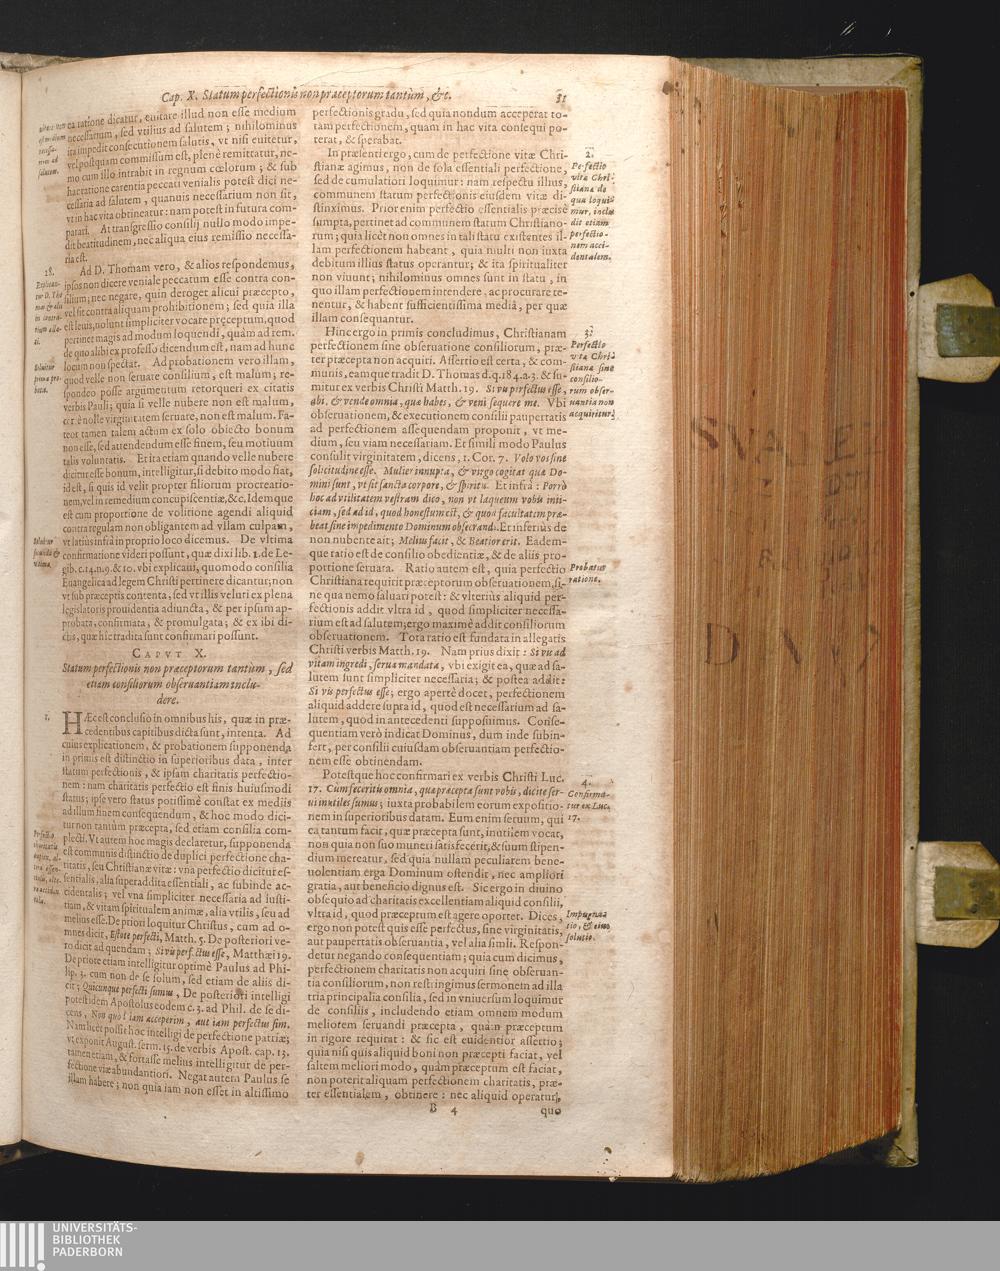 Cap. X. Statum perfectionis non præceptorum tantùm, &c. 31
ea ratione dicatur, euitare illud non esse medium
necessarium, sed vtilius ad salutem; nihilominus
ita impedit consecutionem salutis, vt nisi euitetur,
vel postquam commissum est, plenè remittatur, ne-
mo cum illo intrabit in regnum cœlorum; & sub
hac ratione carentia peccati venialis potest dici ne-
cessaria ad salutem, quanuis necessarium non sit,
vt in hac vita obtineatur: nam potest in futura com-
parari. At transgressio consilij nullo modo impe-
dit beatitudinem, nec aliqua eius remissio necessa-
ria est.
28.
Ad D. Thomam vero, & alios respondemus,
ipsos non dicere veniale peccatum esse contra con-
silium; nec negare, quin deroget alicui præcepto,
vel sit contra aliquam prohibitionem; sed quia illa
est leuis, nolunt simpliciter vocare præceptum, quod
pertinet magis ad modum loquendi, quàm ad rem.
de quo alibi ex professo dicendum est, nam ad hunc
locum non spectat. Ad probationem vero illam,
quod velle non seruare consilium, est malum; re-
spondeo posse argumentum retorqueri ex citatis
verbis Pauli; quia si velle nubere non est malum,
ergo nolle virginitatem seruare, non est malum. Fa-
teor tamen talem actum ex solo obiecto bonum
non esse, sed attendendum esse finem, seu motiuum
talis voluntatis. Et ita etiam quando velle nubere
dicitur esse bonum, intelligitur, si debito modo fiat,
id est, si quis id velit propter filiorum procreatio-
nem, vel in remedium concupiscentiæ, &c. Idemque
est cum proportione de volitione agendi aliquid
contra regulam non obligantem ad vllam culpam,
vt latiùs infrà in proprio loco dicemus. De vltima
confirmatione videri possunt, quæ dixi lib. 1. de Le-
gib. c. 14. n. 9. & 10. vbi explicaui, quomodo consilia
Euangelica ad legem Christi pertinere dicantur; non
vt sub præceptis contenta, sed vt illis veluti ex plena
legislatoris prouidentia adiuncta, & per ipsum ap-
probata, confirmata, & promulgata; & ex ibi di-
ctis, quæ hîc tradita sunt confirmari possunt.
CAPVT X.
Statum perfectionis non præceptorum tantùm, sed
etiam consiliorum obseruantiam inclu-
dere.
1.
HÆc est conclusio in omnibus his, quæ in præ-
cedentibus capitibus dicta sunt, intenta. Ad
cuius explicationem, & probationem supponenda
in primis est distinctio in superioribus data, inter
statum perfectionis, & ipsam charitatis perfectio-
nem: nam charitatis perfectio est finis huiusmodi
status; ipse vero status potissimè constat ex mediis
ad illum finem consequendum, & hoc modo dici-
tur non tantùm præcepta, sed etiam consilia com-
plecti. Vt autem hoc magis declaretur, supponenda
est communis distinctio de duplici perfectione cha-
ritatis, seu Christianæ vitæ: vna perfectio dicitur es-
sentialis, alia superaddita essentiali, ac subinde ac-
cidentalis; vel vna simpliciter necessaria ad iusti-
tiam, & vitam spiritualem animæ, alia vtilis, seu ad
melius esse. De priori loquitur Christus, cum ad o-
mnes dicit, Estote perfecti, Matth. 5. De posteriori ve-
ro dicit ad quendam; Si vis perfectus esse, Matthæi 19.
De priore etiam intelligitur optimè Paulus ad Phi-
lip. 3. cum non de se solum, sed etiam de aliis di-
cit; Quicunque perfecti sumus, De posteriori intelligi
potest idem Apostolus eodem c. 3. ad Phil. de se di-
cens, Non quòd iam acceperim, aut iam perfectus sim.
Nam licèt possit hoc intelligi de perfectione patriæ;
vt exponit August. serm. 15. de verbis Apost. cap. 13.
tamen etiam, & fortasse melius intelligitur de per-
fectione viæ abundantiori. Negat autem Paulus se
illam habere; non quia iam non esset in altissimo
perfectionis gradu, sed quia nondum acceperat to-
tam perfectionem, quam in hac vita consequi po-
terat, & sperabat.
In præsenti ergo, cum de perfectione vitæ Chri-
stianæ agimus, non de sola essentiali perfectione,
sed de cumulatiori loquimur: nam respectu illius,
communem statum perfectionis eiusdem vitæ di-
stinximus. Prior enim perfectio essentialis præcisè
sumpta, pertinet ad communem statum Christiano-
rum; quia licèt non omnes in tali statu existentes il-
lam perfectionem habeant, quia multi non iuxta
debitum illius status operantur; & ita spiritualiter
non viuunt; nihilominus omnes sunt in statu, in
quo illam perfectionem intendere, ac procurare te-
nentur, & habent sufficientissima media, per quæ
illam consequantur.
Hinc ergo in primis concludimus, Christianam
perfectionem sine obseruatione consiliorum, præ-
ter præcepta non acquiri. Assertio est certa, & com-
munis, eamque tradit D. Thomas d. q. 184. a. 3. & su-
mitur ex verbis Christi Matth. 19. Si vis perfectus esse,
abi, & vende omnia, quæ habes, & veni sequere me. Vbi
obseruationem, & executionem consilii paupertatis
ad perfectionem assequendam proponit, vt me-
dium, seu viam necessariam. Et simili modo Paulus
consulit virginitatem, dicens, 1. Cor. 7. Volo vos sine
solicitudine esse. Mulier innupta, & virgo cogitat quæ Do-
mini sunt, vt sit sancta corpore, & spiritu. Et infrà: Porrò
hoc ad vtilitatem vestram dico, non vt laqueum vobis inii-
ciam, sed ad id, quod honestum est, & quod facultatem præ-
beat sine impedimento Dominum obsecrandi. Et inferiùs de
non nubente ait; Melius facit, & Beatior erit. Eadem-
que ratio est de consilio obedientiæ, & de aliis pro-
portione seruata. Ratio autem est, quia perfectio
Christiana requirit præceptorum obseruationem, si-
ne qua nemo saluari potest: & vlteriùs aliquid per-
fectionis addit vltra id, quod simpliciter necessa-
rium est ad salutem; ergo maximè addit consiliorum
obseruationem. Tota ratio est fundata in allegatis
Christi verbis Matth. 19. Nam prius dixit: Si vis ad
vitam ingredi, serua mandata, vbi exigit ea, quæ ad sa-
lutem sunt simpliciter necessaria; & postea addit:
Si vis perfectus esse; ergo apertè docet, perfectionem
aliquid addere supra id, quod est necessarium ad sa-
lutem, quod in antecedenti supposuimus. Conse-
quentiam verò indicat Dominus, dum inde subin-
fert, per consilii cuiusdam obseruantiam perfectio-
nem esse obtinendam.
Potestque hoc confirmari ex verbis Christi Luc.
17. Cum feceritis omnia, quæ præcepta sunt vobis, dicite ser-
ui inutiles sumus; iuxta probabilem eorum expositio-
nem in superioribus datam. Eum enim seruum, qui
ea tantum facit, quæ præcepta sunt, inutilem vocat,
non quia non suo muneri satisfecerit, & suum stipen-
dium mereatur, sed quia nullam peculiarem bene-
uolentiam erga Dominum ostendit, nec ampliori
gratia, aut beneficio dignus est. Sic ergo in diuino
obsequio ad charitatis excellentiam aliquid consilii,
vltra id, quod præceptum est agere oportet. Dices,
ergo non potest quis esse perfectus, sine virginitatis,
aut paupertatis obseruantia, vel alia simili. Respon-
detur negando consequentiam; quia cum dicimus,
perfectionem charitatis non acquiri sine obseruan-
tia consiliorum, non restringimus sermonem ad illa
tria principalia consilia, sed in vniuersum loquimur
de consiliis, includendo etiam omnem modum
meliorem seruandi præcepta, quàm præceptum
in rigore requirat: & sic est euidentior assertio;
quia nisi quis aliquid boni non præcepti faciat, vel
saltem meliori modo, quàm præceptum est faciat,
non poterit aliquam perfectionem charitatis, præ-
ter essentialem, obtinere: nec aliquid operatur,
B 4 quo
2.
Perfectio
vitæ Chri-
stianæ de
qua loqui-
mur, inclu-
dit etiam
perfectio-
nem acci-
dentalem.
3.
Perfectio
vitæ Chri-
stianæ sine
consilio-
rum obser-
uantia non
acquiritur.
Probatur
ratione.
4.
Confirma-
tur ex Luc.
17.
Impugna-
tio, & eius
solutio.
UNIVERSITÄTS-
BIBLIOTHEK
PADERBORN